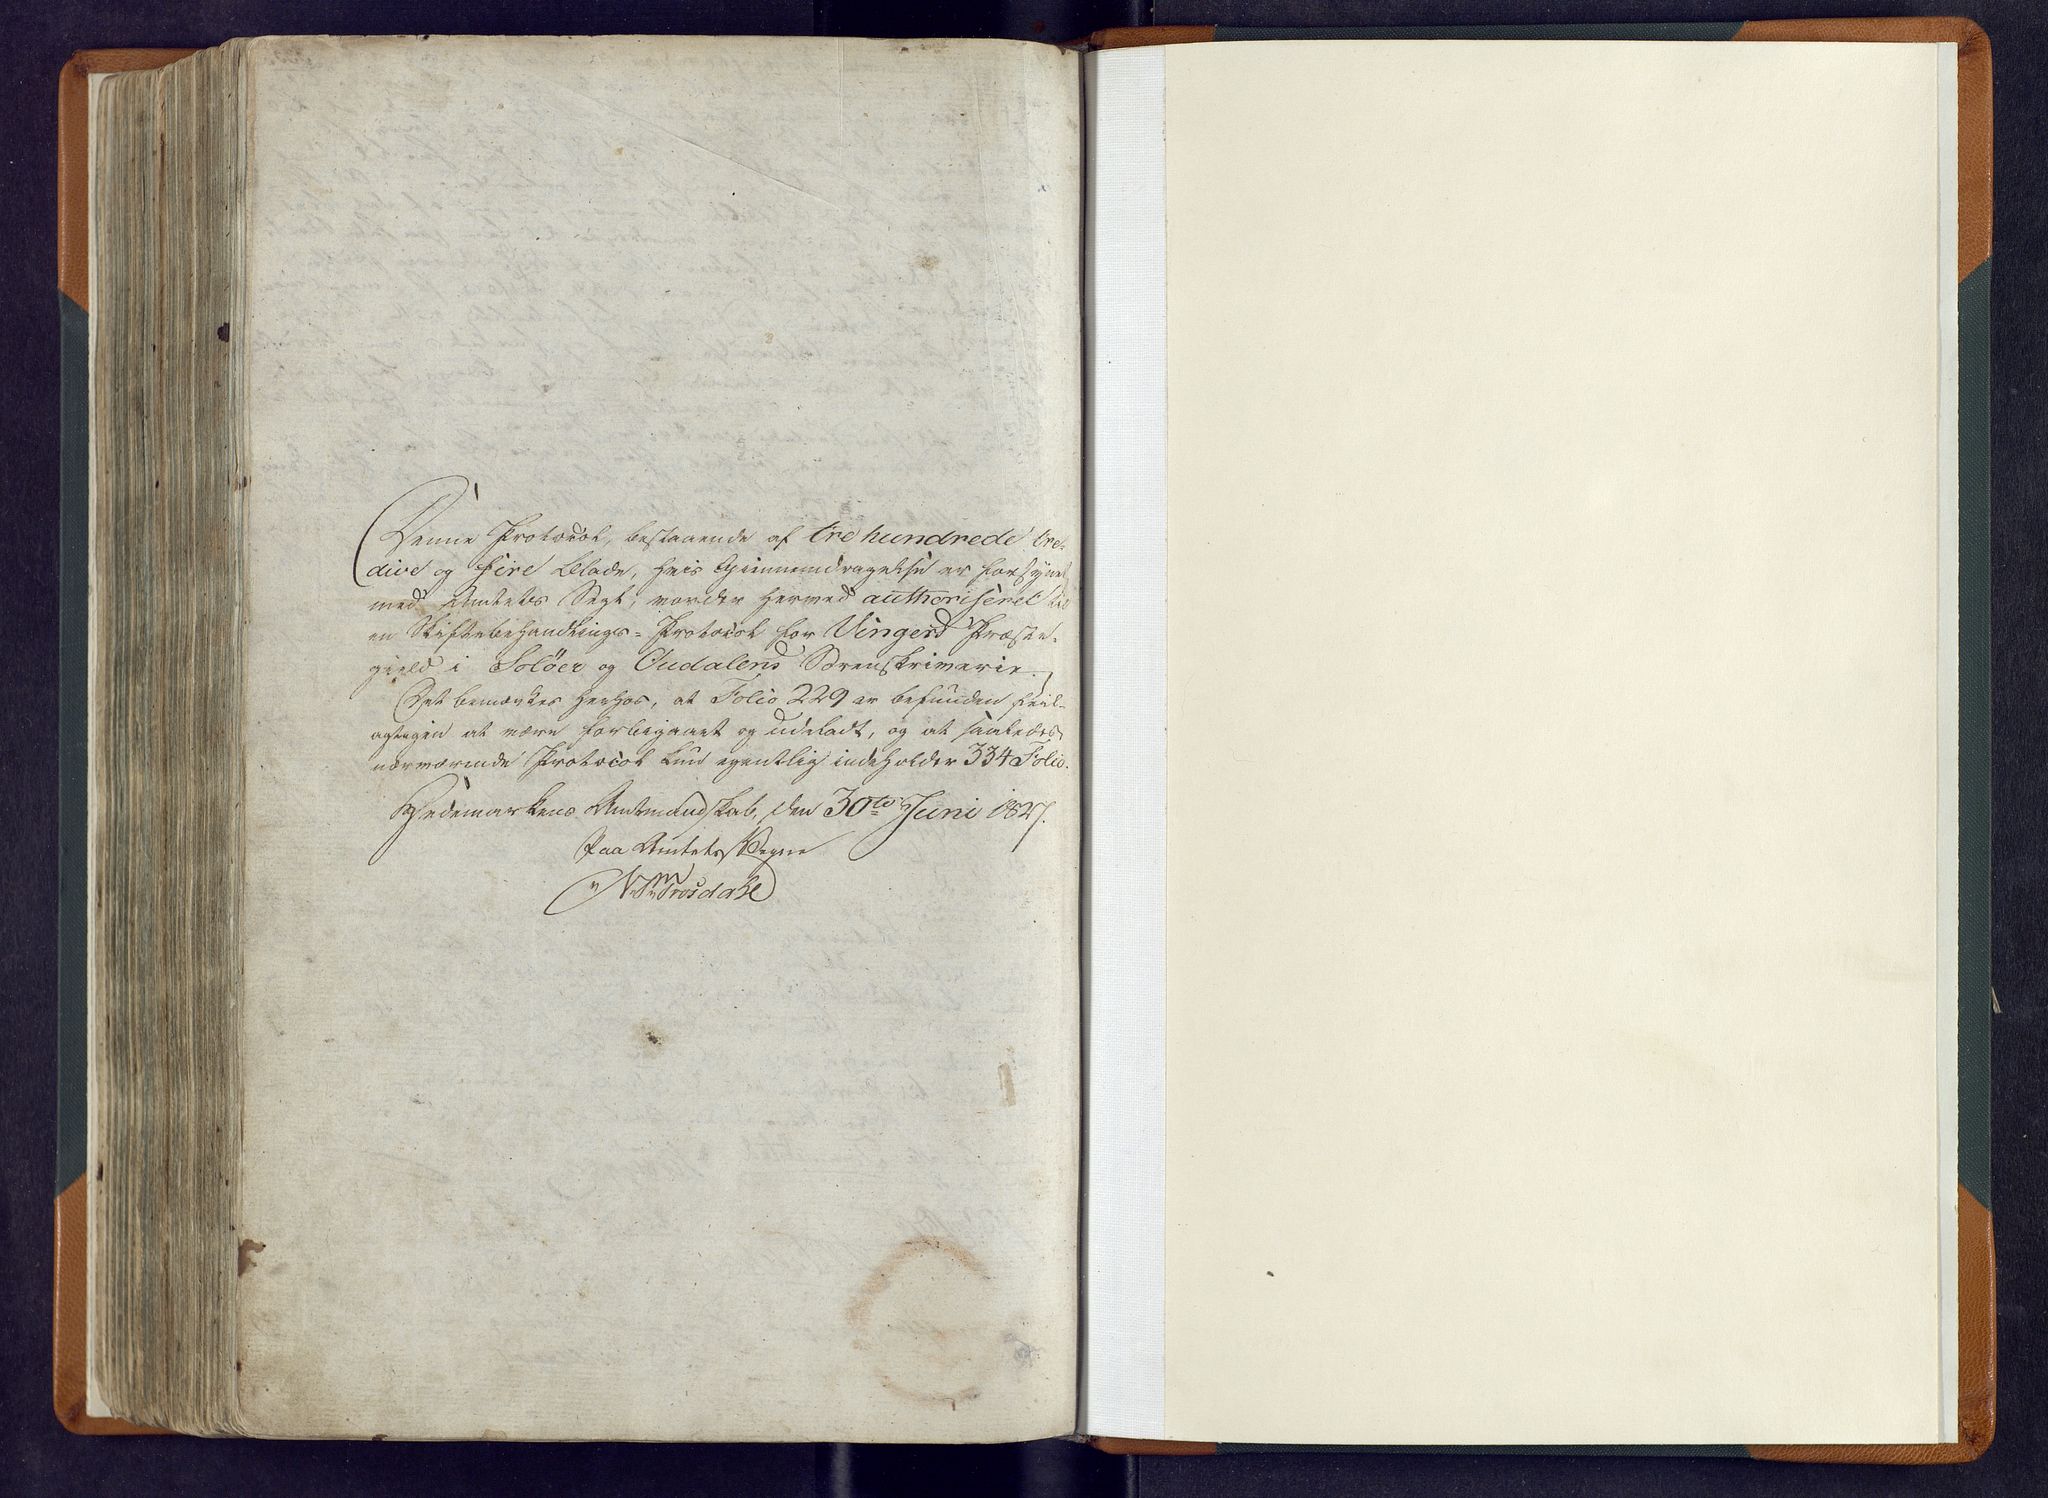 Denne Protocol, bestaaende af tre hundrede tre-
dive og fire Blade, hvis Giennemdragelse er forsynet
med Amtets Segl, vorder herved authoriseret til
en Skiftebehandlings-Protocol for Vingers Præste-
gield i Solöer og Oudalens Sorenskriverie.
Det bemærkes herhos, at Folio 229 er befunden feil-
agtigen at være forbigaaet og udeladt, og at saaledes
nærværende Protocol kun egentlig indeholder 334 Folio.
Hedemarkens Amtmandskab, den 30te Juni 1827.
Paa Amtets Vegne